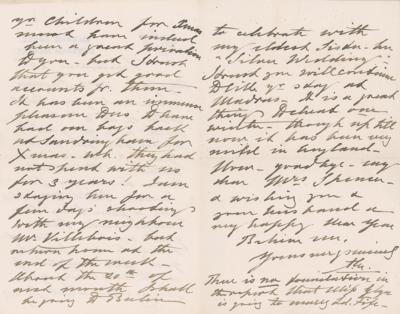 yr. Children for Xmas
must have indeed
been a great privation
to you - but I trust
that you get good
accounts fr. them -
It has been an immense
pleasure to us to have
had our boys back
at Sandringham for
Xmas - wh. they had
not spent with us
for 3 years! I am
staying here for a
few days shooting
with my neighbour
Mr. Villebois - but
return home at the
end of the week -
About the 20th of
next month I shall
be going to Berlin
to celebrate with
my eldest Sister her
"Silver Wedding".
I trust you will continue
to like yr. stay at
Madras. It is a great
thing to cheat one
winter - though up till
now it has been very
mild in England.
Now - good-bye - my
dear Mrs. Spencer -
and wishing you &
your husband a
very happy New Year
Believe me,
Yours very sincerely
There is no foundation in
the report that Miss Glyn
is going to marry Ld. Fife -